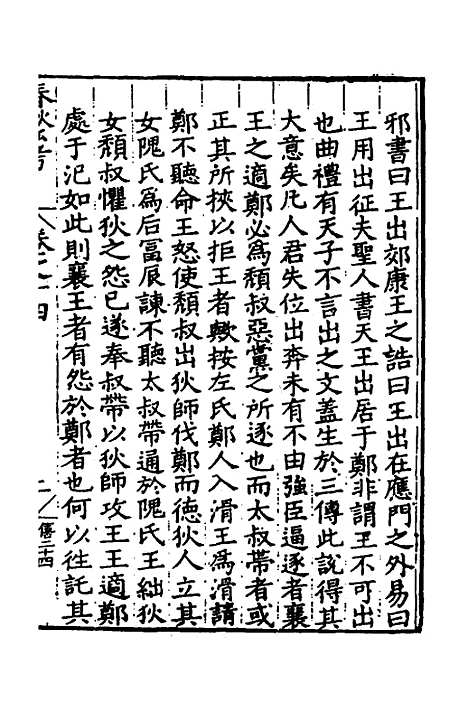 邪書曰王出郊康王之誥曰王出在應門之外易曰
王用出征夫聖人書天王出居于鄭非謂王不可出
也曲禮有天子不言出之文蓋生於三傳此說得其
大意矣凡人君失位出奔未有不由強臣逼逐者襄
王之適鄭必為頽叔惡黨之所逐也而太叔帶者或
正其所挾以拒王者歟按左氏鄭人入滑王為滑請
鄭不聽命王怒使頽叔出狄師伐鄭而德狄人立其
女隗氏為后富辰諫不聽太叔帶通於隗氏王絀狄
女頽叔懼狄之怨已遂奉叔帶以狄師攻王王適鄭
處于氾如此則襄王者有怨於鄭者也何以往託其
春秋
卷之十四
二
僖二十四